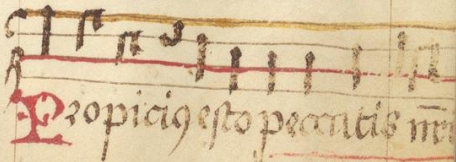 Propiciꝰ esto peccatis nr̄i